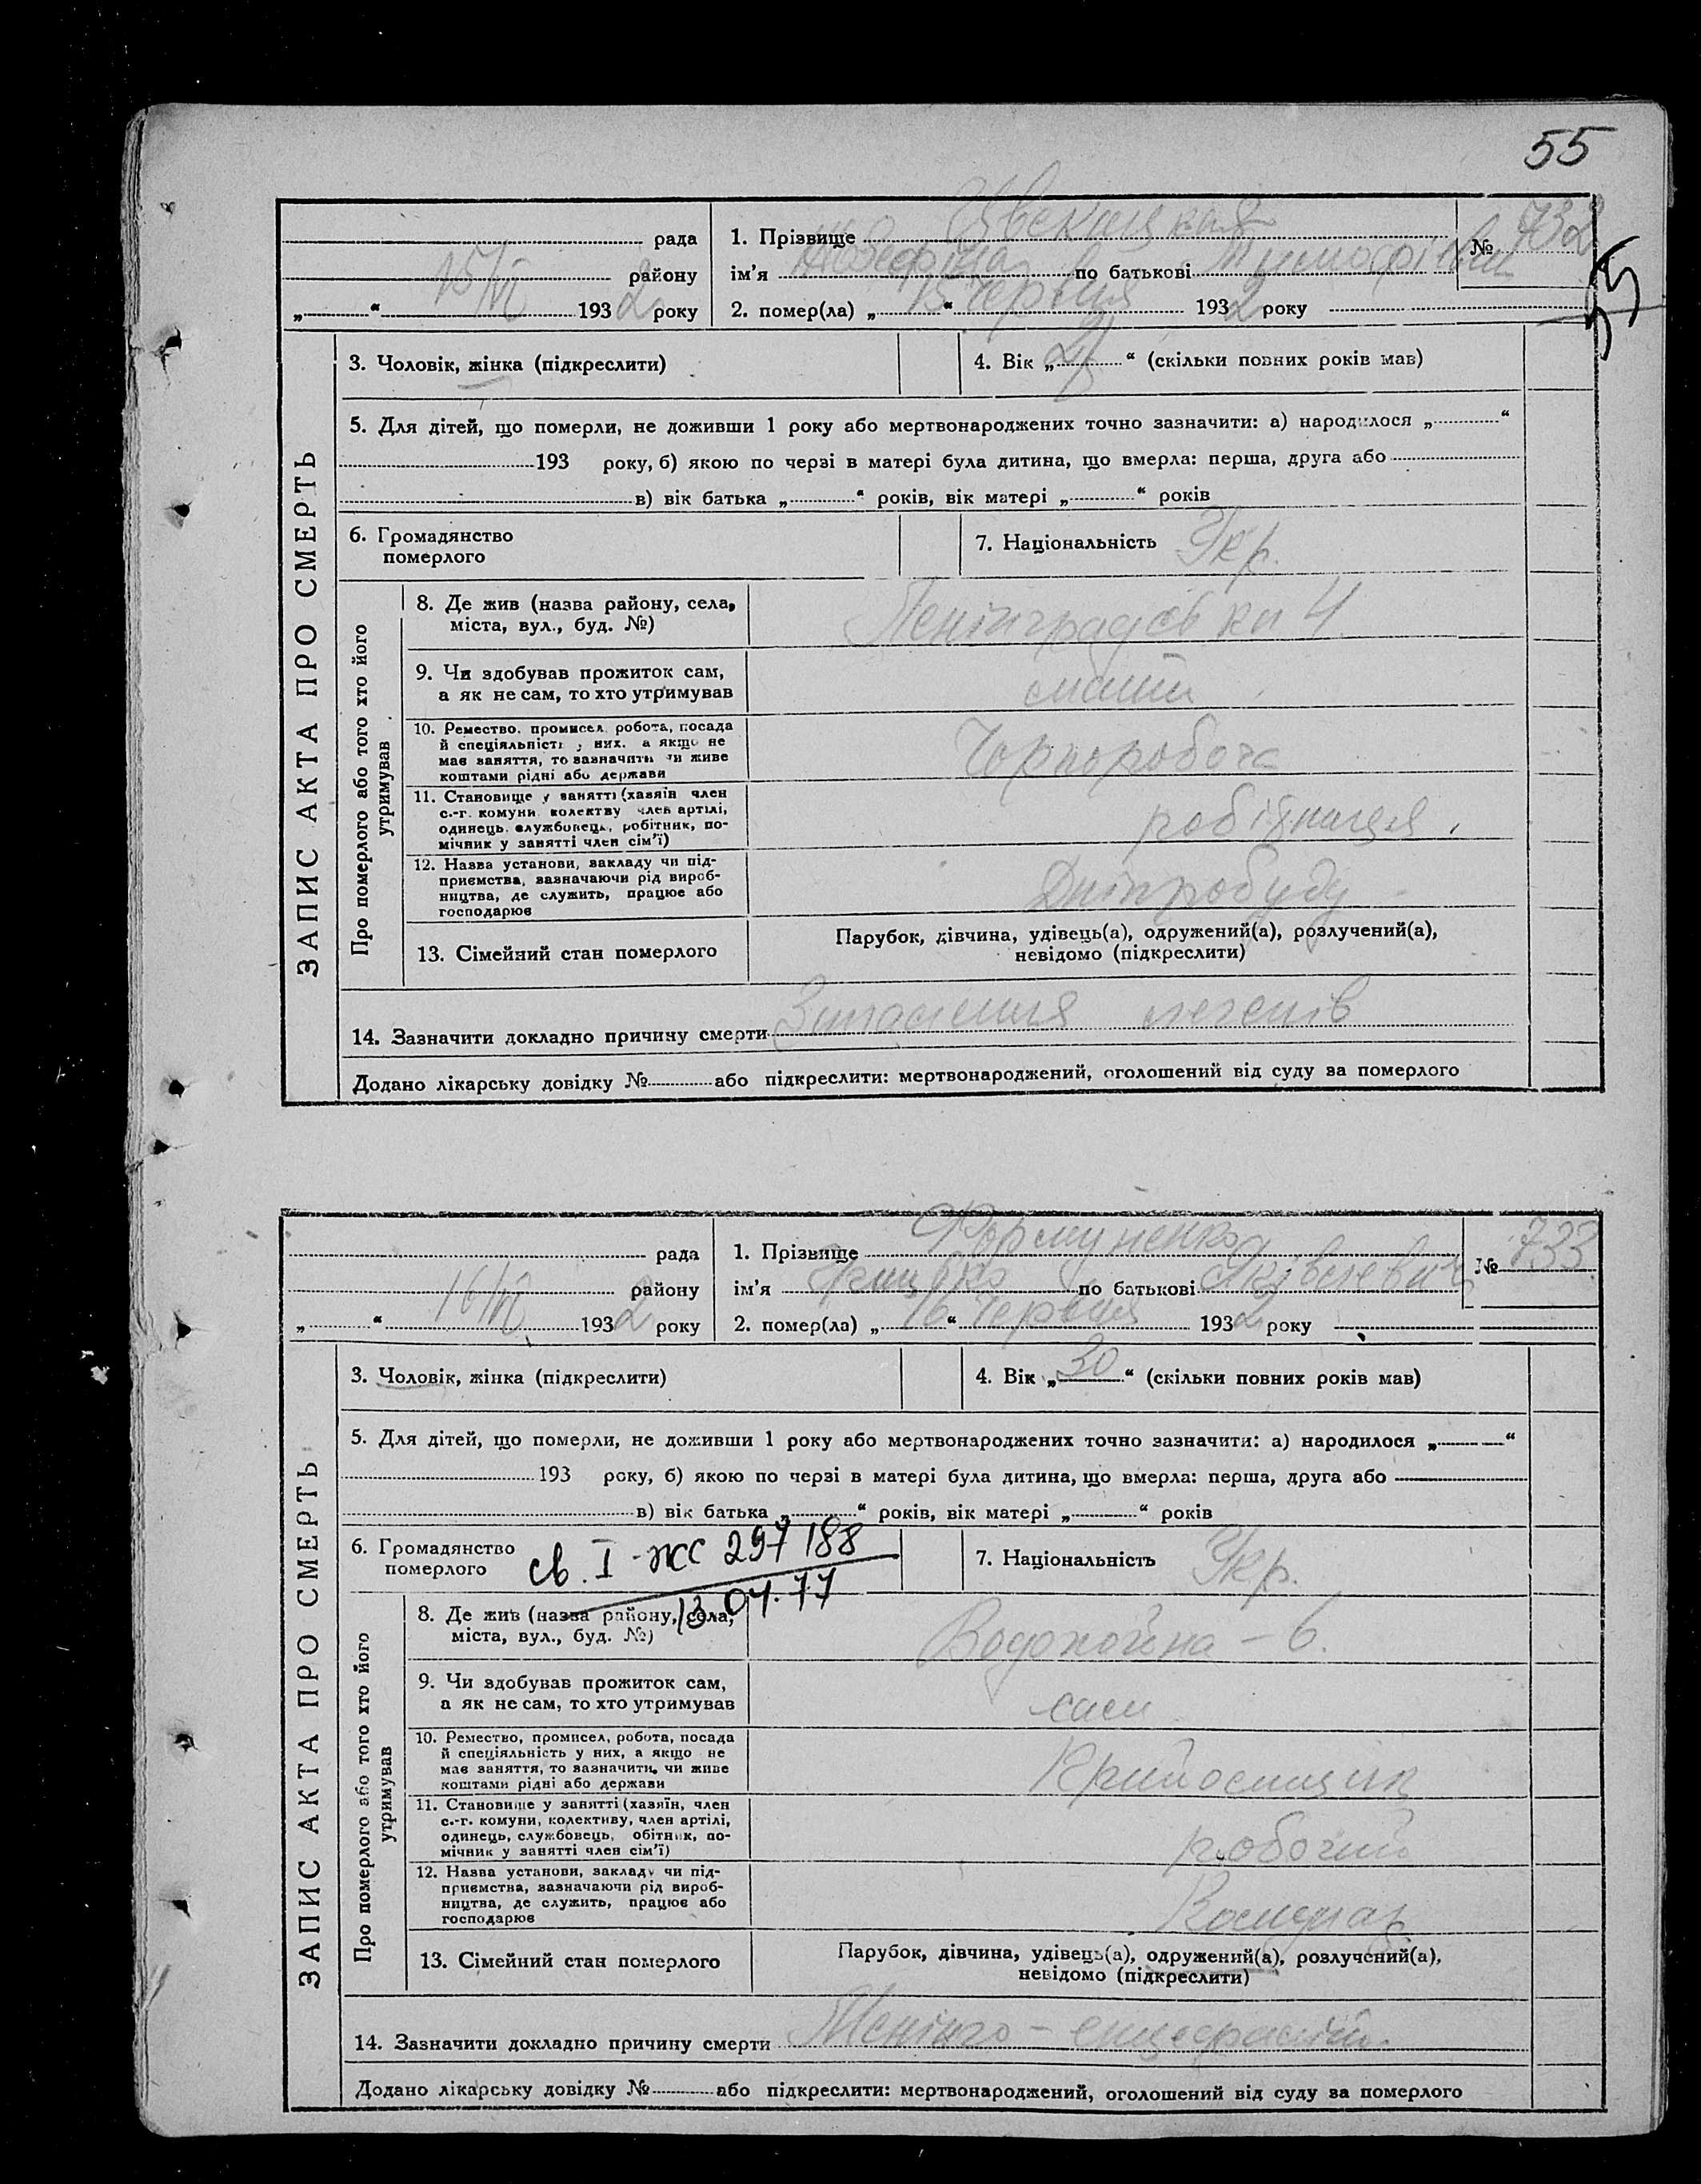 55
рада
району
15/VI 1932 року
1. Прізвище
ім'я по батькові
2. помер(ла) „15“ Червня 1932 року
№ 732
55
ЗАПИС АКТА ПРО СМЕРТЬ
3. Чоловік, жінка (підкреслити)
4. Вік „ “ (скільки повних років мав)
5. Для дітей, що померли, не доживши 1 року або мертвонароджених точно зазначити: а) народилося „ “
193 року, б) якою по черзі в матері була дитина, що вмерла: перша, друга або
в) вік батька „ “ років, вік матері „ “ років
6. Громадянство
померлого
7. Національність Укр.
Про померлого або того хто його
утримував
8. Де жив (назва району, села,
міста, вул., буд. №)
Ленінградська 4
9. Чи здобував прожиток сам,
а як не сам, то хто утримував
10. Ремество, промисел, робота, посада
й спеціяльність у них, а якщо не
має заняття, то зазначити чи живе
коштами рідні або держави
Чорноробоча
11. Становище у занятті (хазяїн член
с.-г. комуни колективу член артілі,
одинець, службовець, робітник, по-
мічник у занятті член сім'ї)
робітниця.
12. Назва установи, закладу чи під-
приємства, зазначаючи рід вироб-
ництва, де служить, працює або
господарює
Дніпробуду
13. Сімейний стан померлого
Парубок, дівчина, удівець(а), одружений(а), розлучений(а),
невідомо (підкреслити)
14. Зазначити докладно причину смерти Запалення легенів
Додано лікарську довідку № або підкреслити: мертвонароджений, оголошений від суду за померлого
рада
району
16/VI 1932 року
1. Прізвище
ім'я Грицько по батькові Яківлевич
2. помер(ла) „16“ Червня 1932 року
№ 733
ЗАПИС АКТА ПРО СМЕРТЬ
3. Чоловік, жінка (підкреслити)
4. Вік „30“ (скільки повних років мав)
5. Для дітей, що померли, не доживши 1 року або мертвонароджених точно зазначити: а) народилося „ “
193 року, б) якою по черзі в матері була дитина, що вмерла: перша, друга або
в) вік батька „ “ років, вік матері „ “ років
6. Громадянство
померлого
св. I-ЖС 297188
13.04.77
7. Національність Укр.
Про померлого або того хто його
утримував
8. Де жив (назва району, села,
міста, вул., буд. №)
Водопойна - 6.
9. Чи здобував прожиток сам,
а як не сам, то хто утримував
сам
10. Ремество, промисел, робота, посада
й спеціяльність у них, а якщо не
має заняття, то зазначити, чи живе
коштами рідні або держави
11. Становище у занятті (хазяїн, член
с.-г. комуни, колективу, член артілі,
одинець, службовець, обітник, по-
мічник у занятті член сім'ї)
робочий
12. Назва установи, закладу чи під-
приємства, зазначаючи рід вироб-
ництва, де служить, працює або
господарює
13. Сімейний стан померлого
Парубок, дівчина, удівець(а), одружений(а), розлучений(а),
невідомо (підкреслити)
14. Зазначити докладно причину смерти Менінго-енцефаліт.
Додано лікарську довідку № або підкреслити: мертвонароджений, оголошений від суду за померлого